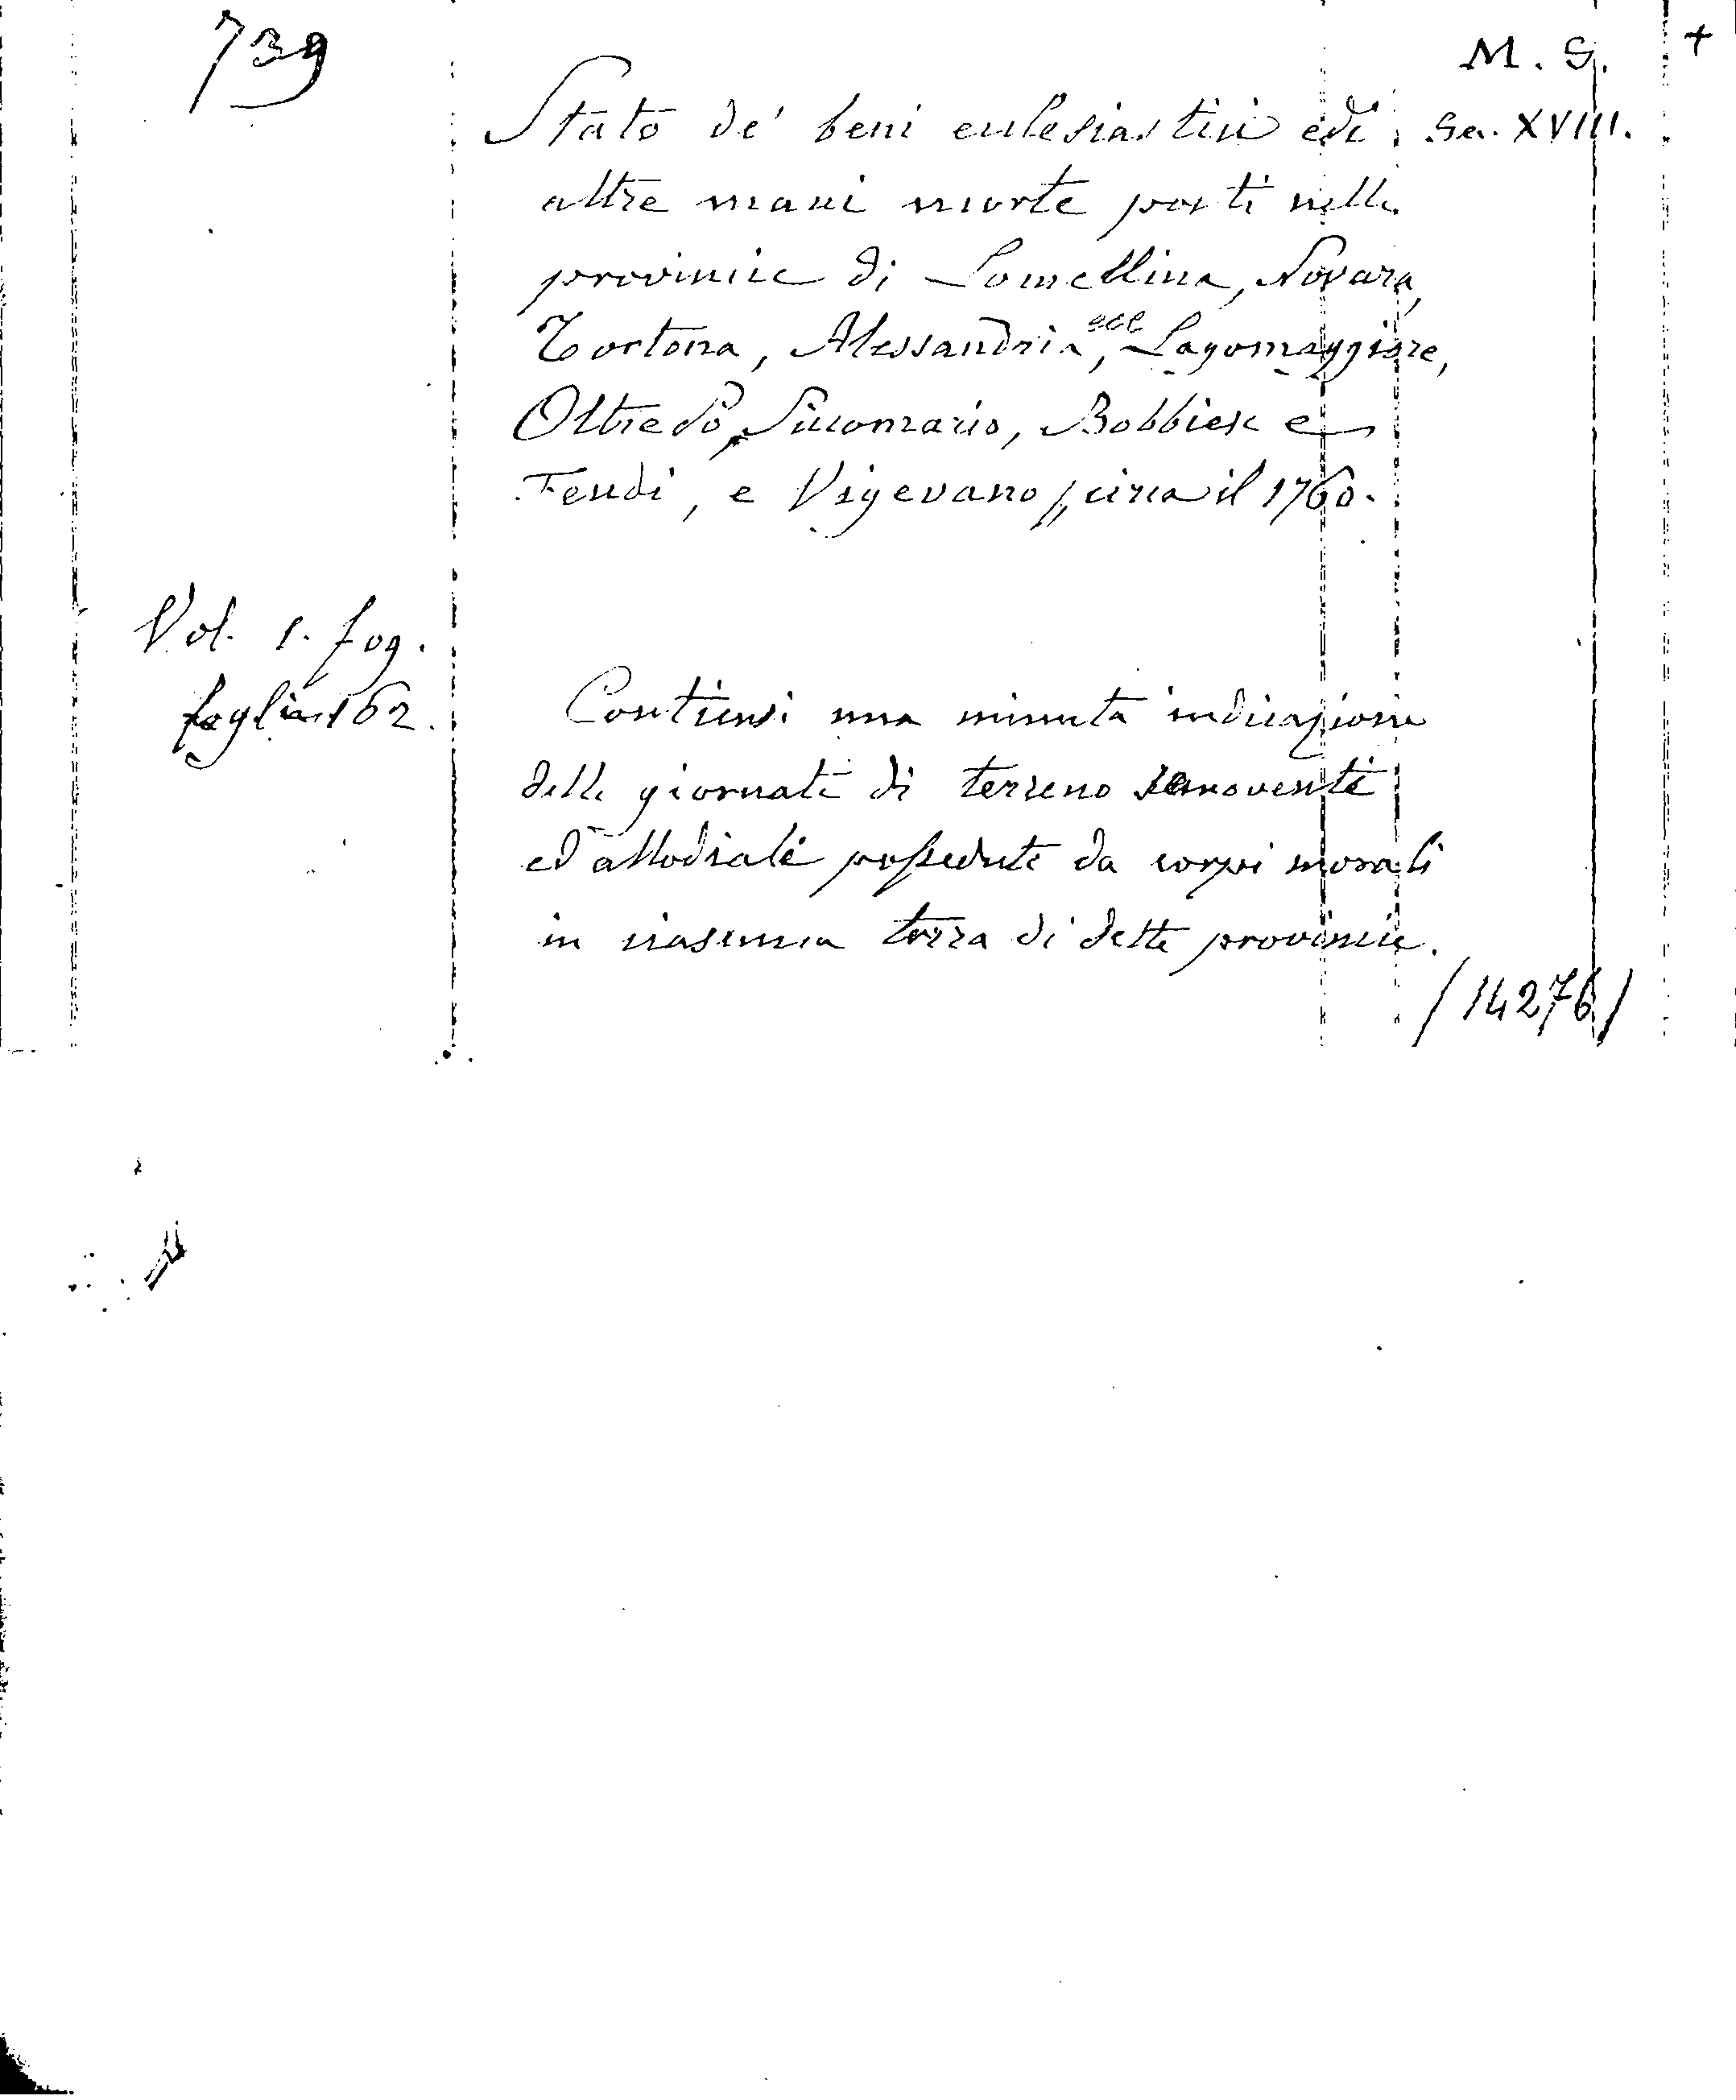 739
M. S. +
Stato de' beni ecclesiastici e di Sec. XVIII.
altre mani morte posti nelle
provincie di Lomellina, Novara,
Tortona, Alessandria, Lagomaggiore,
Oltrepò, Siccomario, Bobbiese e
Feudi, e Vigevano, circa il 1760.
Vol. 1. fog.
fogli 162.
Contiensi una minuta indicazione
delle giornate di terreno
ed allodiale possedute da corpi morali
in ciascuna terra di dette provincie.
/14276/